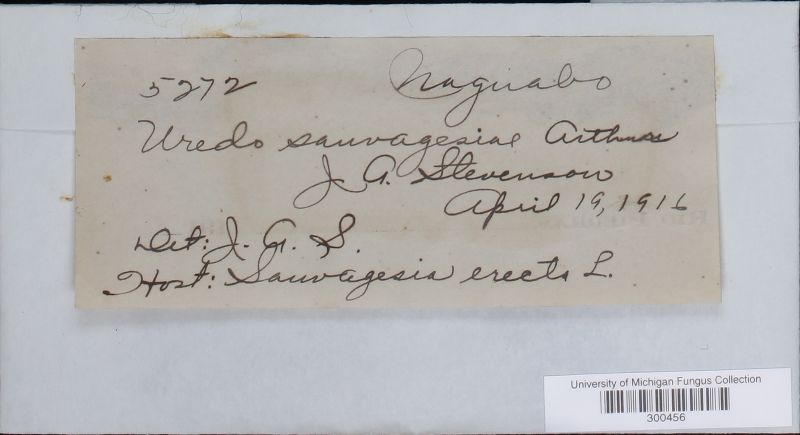 5272 Naguabo
Uredo sauvagesiae Arthur
J. A. Stevenson
April 19, 1916
Det: J. A. S.
Host: Sauvagesia erecta L.
University of Michigan Fungus Collection
300456